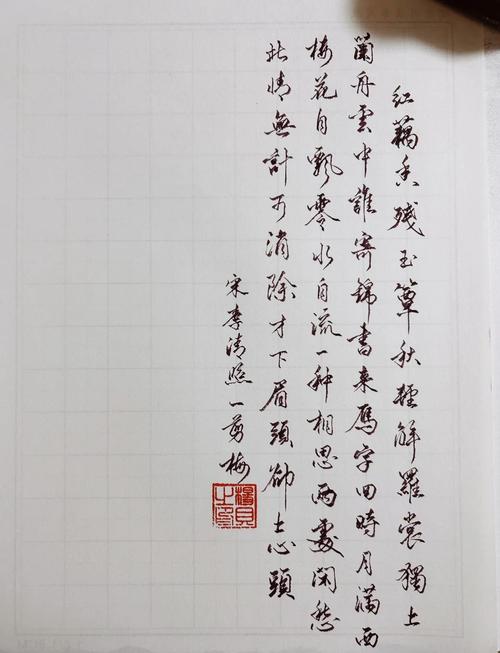 红藕香残玉簟秋轻解羅裳獨上
蘭舟雲中誰寄錦書来雁字回時月滿西
楼花自飄零水自流一种相思两處闲愁
此情無計可消除才下眉頭卻上心頭
宋李清照一剪梅